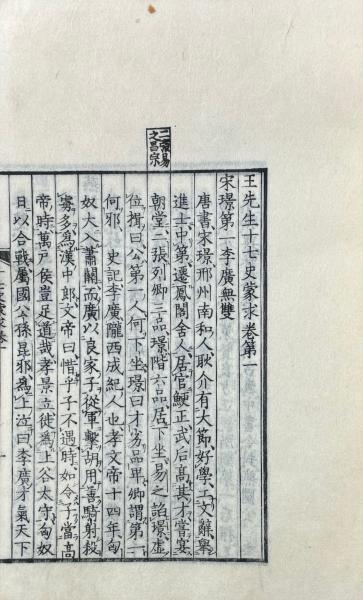 二張易
之昌宗
王先生十七史蒙求卷第一
宋璟第一李廣無雙
唐書宋璟邢州南和人耿介有大節好學工文辭舉
進士中第遷鳳閣舍人居官鯁正武后高其才嘗宴
朝堂二張列卿三品璟階六品居下坐易之諂璟虛
位揖曰公第一人何下坐璟曰才劣品卑卿謂第一
何邪 史記李廣隴西成紀人也孝文帝十四年匈
奴大入蕭關而廣以良家子從軍擊胡用善騎射殺
多爲漢中郎文帝曰惜乎子不遇時如令子當高
帝時萬戸侯豈足道哉孝景立徙爲上谷太守匈奴
日以合戰屬國公孫昆邪爲上泣曰李廣才氣天下